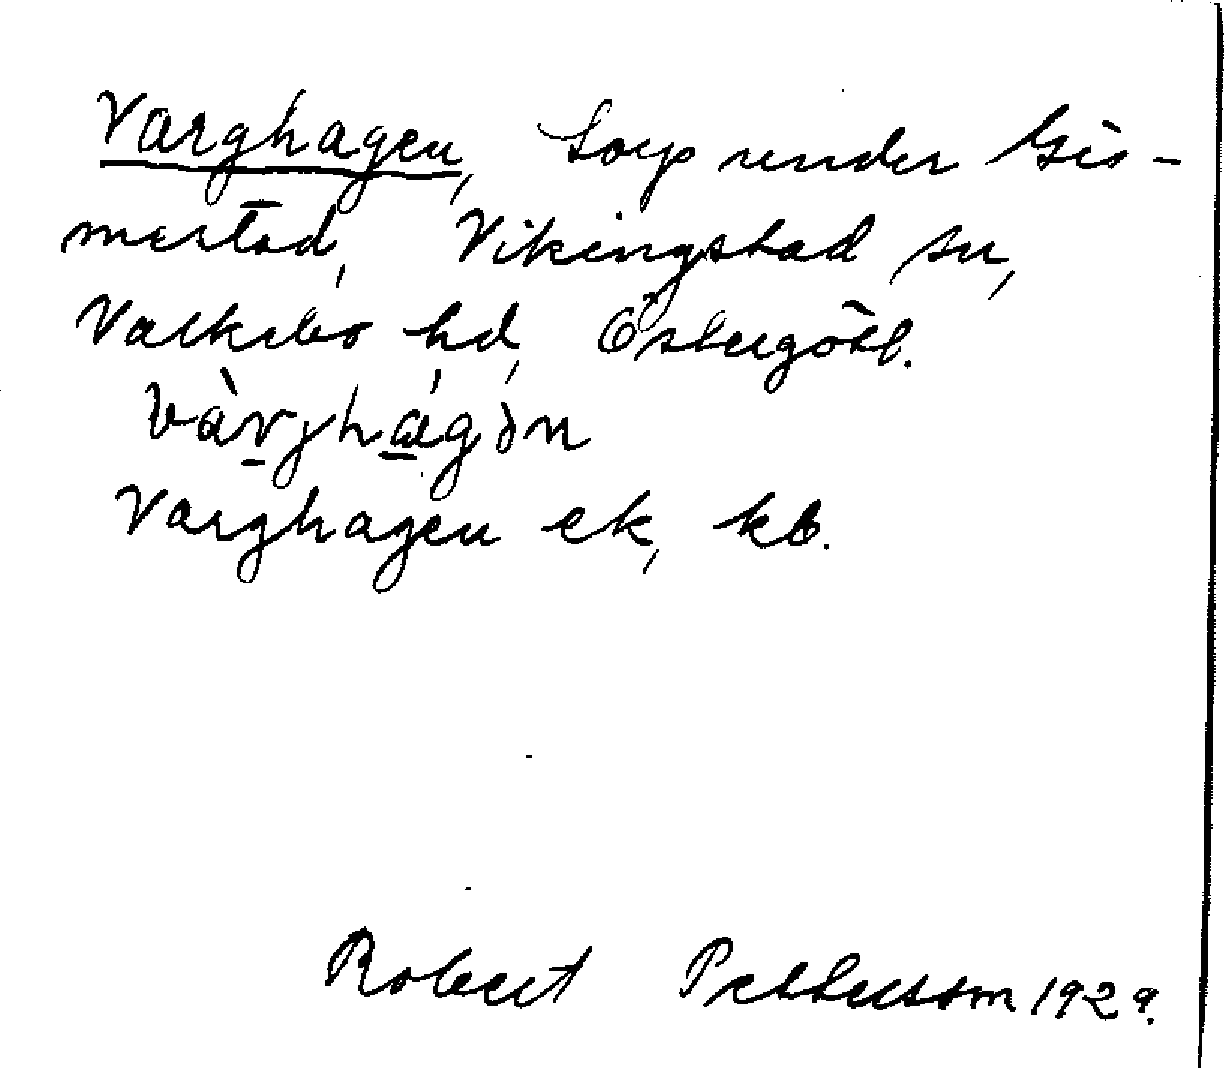 Varghagen, Torp under Gis-
mestad, Vikingstad sn,
Valkebo hd, Östergötl.
vàrjhágən
Varghagen ek, kb.
Robert Pettersson 1929.